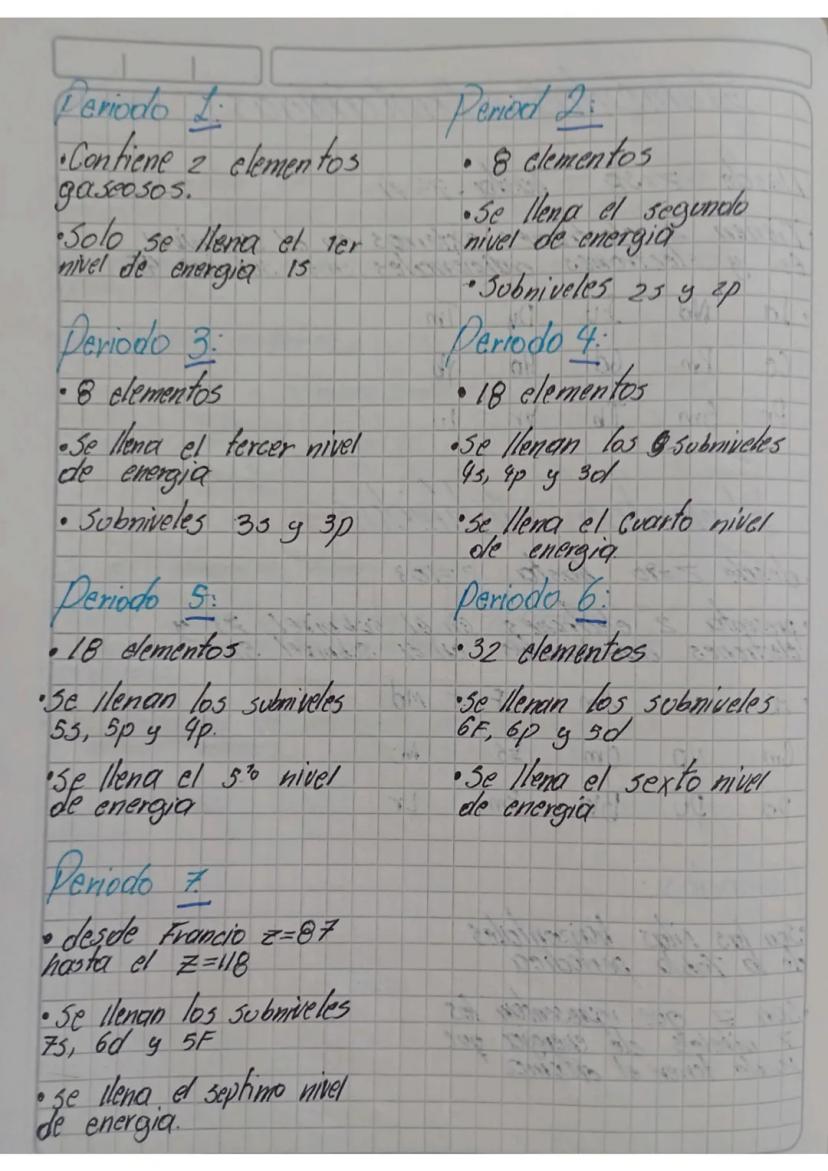 Periodo 1:
• Contiene 2 elementos
gaseosos.
• Solo se llena el 1er
nivel de energia 1s
Period 2:
• 8 elementos
• Se llena el segundo
nivel de energia
• Subniveles 2s y 2p
Periodo 3:
• 8 elementos
• Se llena el tercer nivel
de energia
• Subniveles 3s y 3p
Periodo 4:
• 18 elementos
• Se llenan los subniveles
4s, 4p y 3d
• Se llena el cuarto nivel
de energia
Periodo 5:
• 18 elementos
• Se llenan los subniveles
5s, 5p y 4p.
• Se llena el 5to nivel
de energia
Periodo 6:
• 32 elementos
• Se llenan los subniveles
6F, 6p y 5d
• Se llena el sexto nivel
de energia
Periodo 7
• desde Francio z=87
hasta el z=118
• Se llenan los subniveles
7s, 6d y 5F
• se llena el septimo nivel
de energia.